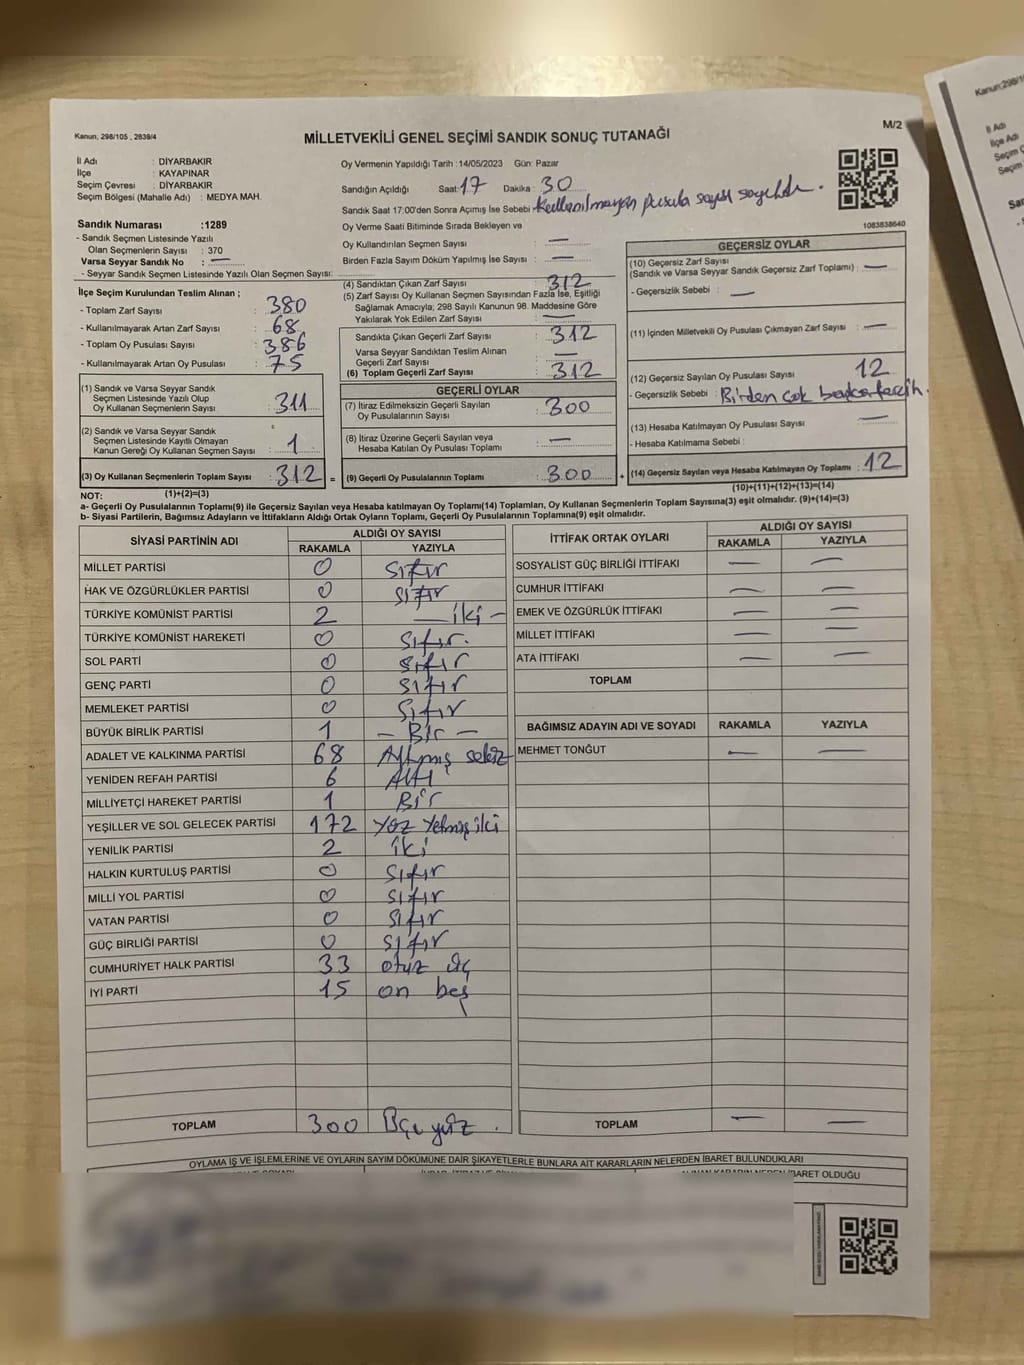 Kanun, 298/105 , 2839/4
MİLLETVEKİLİ GENEL SEÇİMİ SANDIK SONUÇ TUTANAĞI
M/2
İl Adı : DİYARBAKIR
İlçe : KAYAPINAR
Seçim Çevresi : DİYARBAKIR
Seçim Bölgesi (Mahalle Adı) : MEDYA MAH.
Oy Vermenin Yapıldığı Tarih :14/05/2023 Gün: Pazar
Sandığın Açıldığı Saat: 17 Dakika : 30
Sandık Saat 17:00'den Sonra Açımış İse Sebebi : Kullanılmayan pusula sayısı sayıldı.
1083838640
Sandık Numarası :1289
- Sandık Seçmen Listesinde Yazılı
Olan Seçmenlerin Sayısı : 370
Varsa Seyyar Sandık No : —
- Seyyar Sandık Seçmen Listesinde Yazılı Olan Seçmen Sayısı:
Oy Verme Saati Bitiminde Sırada Bekleyen ve
Oy Kullandırılan Seçmen Sayısı : —
Birden Fazla Sayım Döküm Yapılmış İse Sayısı : —
İlçe Seçim Kurulundan Teslim Alınan ;
- Toplam Zarf Sayısı : 380
- Kullanılmayarak Artan Zarf Sayısı : 68
- Toplam Oy Pusulası Sayısı : 386
- Kullanılmayarak Artan Oy Pusulası : 75
(1) Sandık ve Varsa Seyyar Sandık
Seçmen Listesinde Yazılı Olup
Oy Kullanan Seçmenlerin Sayısı : 311
(2) Sandık ve Varsa Seyyar Sandık
Seçmen Listesinde Kayıtlı Olmayan
Kanun Gereği Oy Kullanan Seçmen Sayısı : 1
(3) Oy Kullanan Seçmenlerin Toplam Sayısı : 312 =
(1)+(2)=(3)
(4) Sandıktan Çıkan Zarf Sayısı : 312
(5) Zarf Sayısı Oy Kullanan Seçmen Sayısından Fazla İse, Eşitliği
Sağlamak Amacıyla; 298 Sayılı Kanunun 98. Maddesine Göre
Yakılarak Yok Edilen Zarf Sayısı : —
Sandıkta Çıkan Geçerli Zarf Sayısı : 312
Varsa Seyyar Sandıktan Teslim Alınan
Geçerli Zarf Sayısı : —
(6) Toplam Geçerli Zarf Sayısı : 312
GEÇERLİ OYLAR
(7) İtiraz Edilmeksizin Geçerli Sayılan
Oy Pusulalarının Sayısı : 300
(8) İtiraz Üzerine Geçerli Sayılan veya
Hesaba Katılan Oy Pusulası Toplamı : —
(9) Geçerli Oy Pusulalarının Toplamı : 300 +
GEÇERSİZ OYLAR
(10) Geçersiz Zarf Sayısı
(Sandık ve Varsa Seyyar Sandık Geçersiz Zarf Toplamı) : —
- Geçersizlik Sebebi : —
(11) İçinden Milletvekili Oy Pusulası Çıkmayan Zarf Sayısı : —
(12) Geçersiz Sayılan Oy Pusulası Sayısı : 12
- Geçersizlik Sebebi : Birden çok tercih.
(13) Hesaba Katılmayan Oy Pusulası Sayısı : —
- Hesaba Katılmama Sebebi :
(14) Geçersiz Sayılan veya Hesaba Katılmayan Oy Toplamı : 12
(10)+(11)+(12)+(13)=(14)
NOT:
a- Geçerli Oy Pusulalarının Toplamı(9) ile Geçersiz Sayılan veya Hesaba katılmayan Oy Toplamı(14) Toplamları, Oy Kullanan Seçmenlerin Toplam Sayısına(3) eşit olmalıdır. (9)+(14)=(3)
b- Siyasi Partilerin, Bağımsız Adayların ve İttifakların Aldığı Ortak Oyların Toplamı, Geçerli Oy Pusulalarının Toplamına(9) eşit olmalıdır.
SİYASİ PARTİNİN ADI ALDIĞI OY SAYISI
RAKAMLA YAZIYLA
MİLLET PARTİSİ 0 sıfır
HAK VE ÖZGÜRLÜKLER PARTİSİ 0 sıfır
TÜRKİYE KOMÜNİST PARTİSİ 2 — iki —
TÜRKİYE KOMÜNİST HAREKETİ 0 sıfır.
SOL PARTİ 0 sıfır
GENÇ PARTİ 0 sıfır
MEMLEKET PARTİSİ 0 sıfır
BÜYÜK BİRLİK PARTİSİ 1 — Bir —
ADALET VE KALKINMA PARTİSİ 68 Altmış sekiz
YENİDEN REFAH PARTİSİ 6 Altı
MİLLİYETÇİ HAREKET PARTİSİ 1 Bir
YEŞİLLER VE SOL GELECEK PARTİSİ 172 Yüz Yetmiş iki
YENİLİK PARTİSİ 2 iki
HALKIN KURTULUŞ PARTİSİ 0 sıfır
MİLLİ YOL PARTİSİ 0 sıfır
VATAN PARTİSİ 0 sıfır
GÜÇ BİRLİĞİ PARTİSİ 0 sıfır
CUMHURİYET HALK PARTİSİ 33 otuz üç
İYİ PARTİ 15 on beş
TOPLAM 300 Üç yüz.
İTTİFAK ORTAK OYLARI ALDIĞI OY SAYISI
RAKAMLA YAZIYLA
SOSYALIST GÜÇ BİRLİĞİ İTTİFAKI — —
CUMHUR İTTİFAKI — —
EMEK VE ÖZGÜRLÜK İTTİFAKI — —
MİLLET İTTİFAKI — —
ATA İTTİFAKI — —
TOPLAM
BAĞIMSIZ ADAYIN ADI VE SOYADI RAKAMLA YAZIYLA
MEHMET TONĞUT — —
TOPLAM — —
OYLAMA İŞ VE İŞLEMLERİNE VE OYLARIN SAYIM DÖKÜMÜNE DAİR ŞİKAYETLERLE BUNLARA AİT KARARLARIN NELERDEN İBARET BULUNDUKLARI
İBARET OLDUĞU
Kanun:298/1
İl Adı
İlçe Adı
Seçim Ç
Seçim